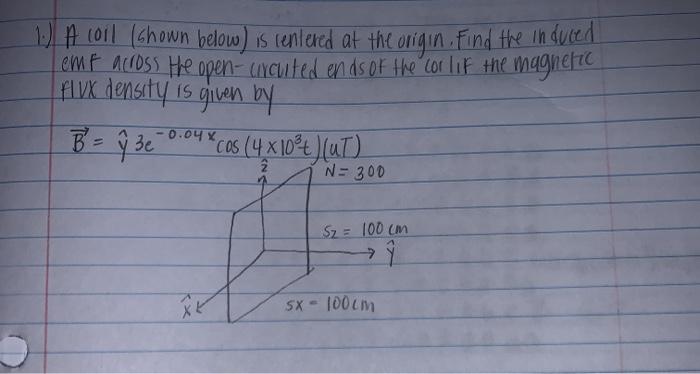 1.) A coil (shown below) is centered at the origin. Find the induced
emf across the open-circuited ends of the coil if the magnetic
flux density is given by
B⃗ = ŷ 3e^-0.04x cos (4×10³t)(uT)
ẑ
N = 300
Sz = 100 cm
ŷ
x̂
Sx = 100cm